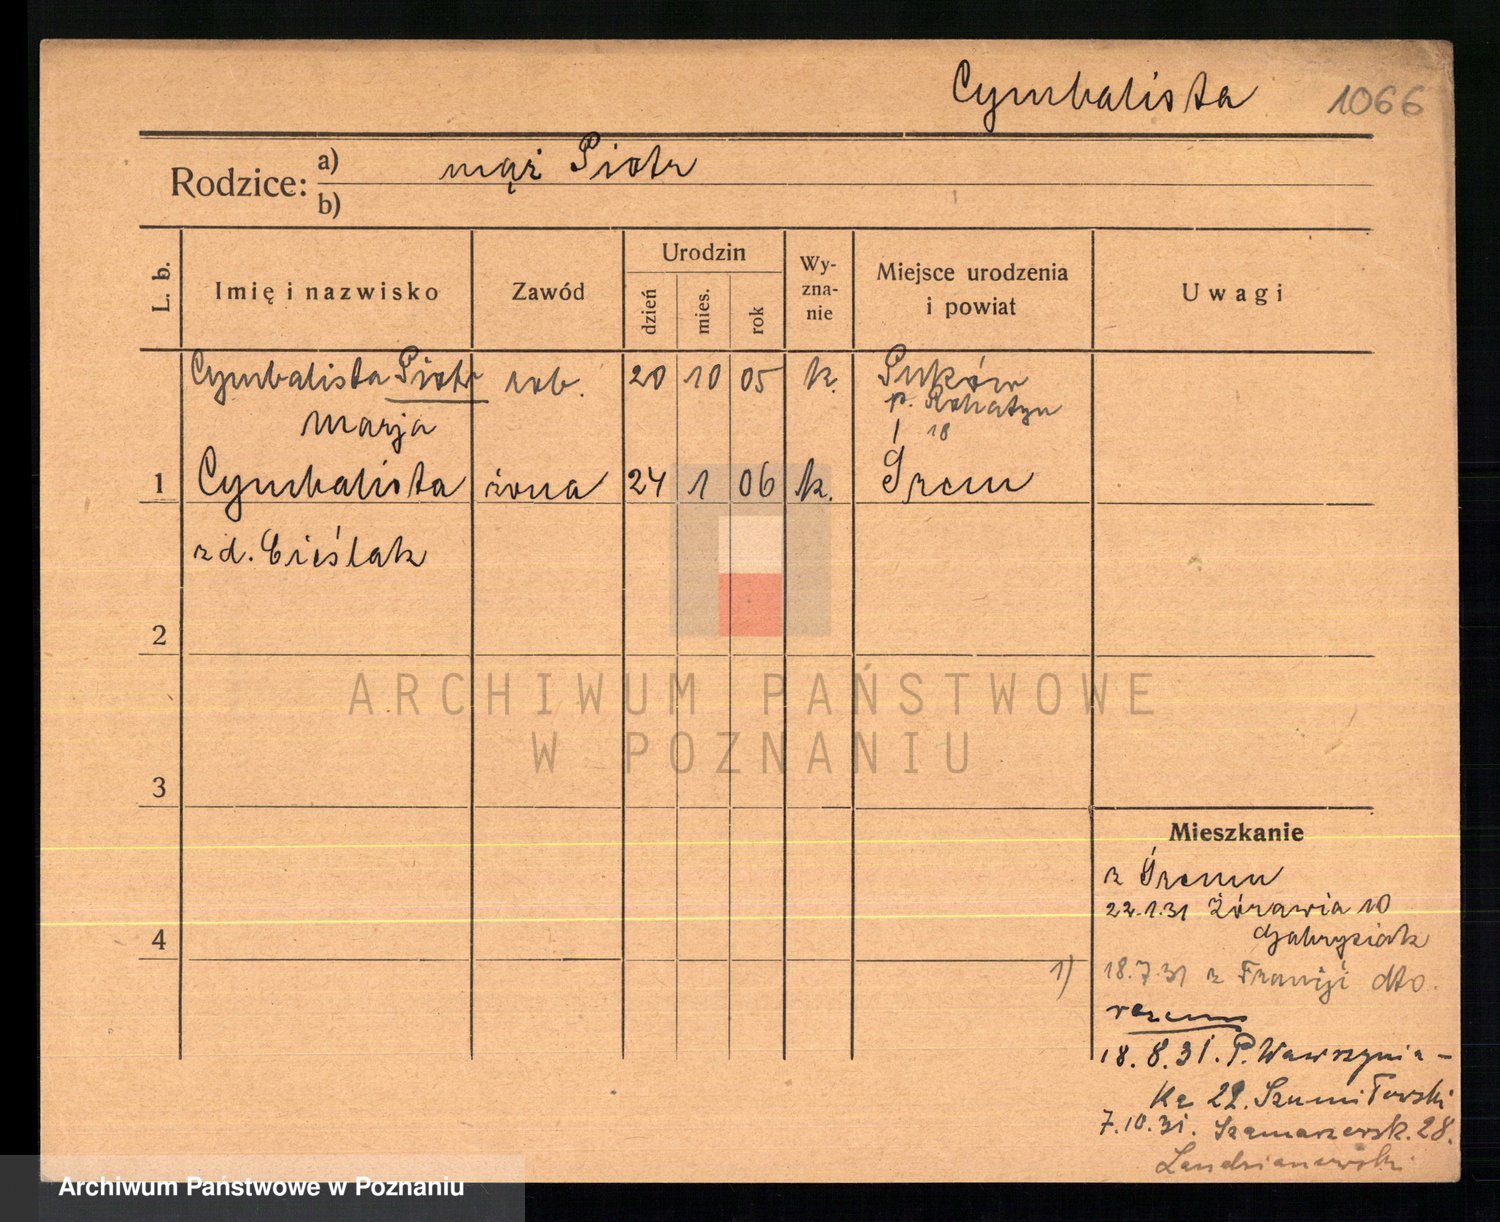 Cymbalista 1066
Rodzice: a) mąż Piotr
b)
L. b.
Imię i nazwisko
Zawód
Urodzin
dzień
mies.
rok
Wy-
zna-
nie
Miejsce urodzenia
i powiat
Uwagi
Cymbalista Piotr rob. 20 10 05 k. Puków
p. Rohatyn
Marja
18
1 Cymbalista żona 24 1 06 k. Śrem
z d. Cieślak
2
ARCHIWUM PAŃSTWOWE
W POZNANIU
3
Mieszkanie
z Śremu
22.1.31 Żórawia 10
Gabrysiak
4
1) 18.7.31 z Francji dto.
razem
18.8.31. P. Wawrzynia-
ka 22. Szumiłowski
7.10.31. Szamarzewsk. 28.
Landzianowski
Archiwum Państwowe w Poznaniu